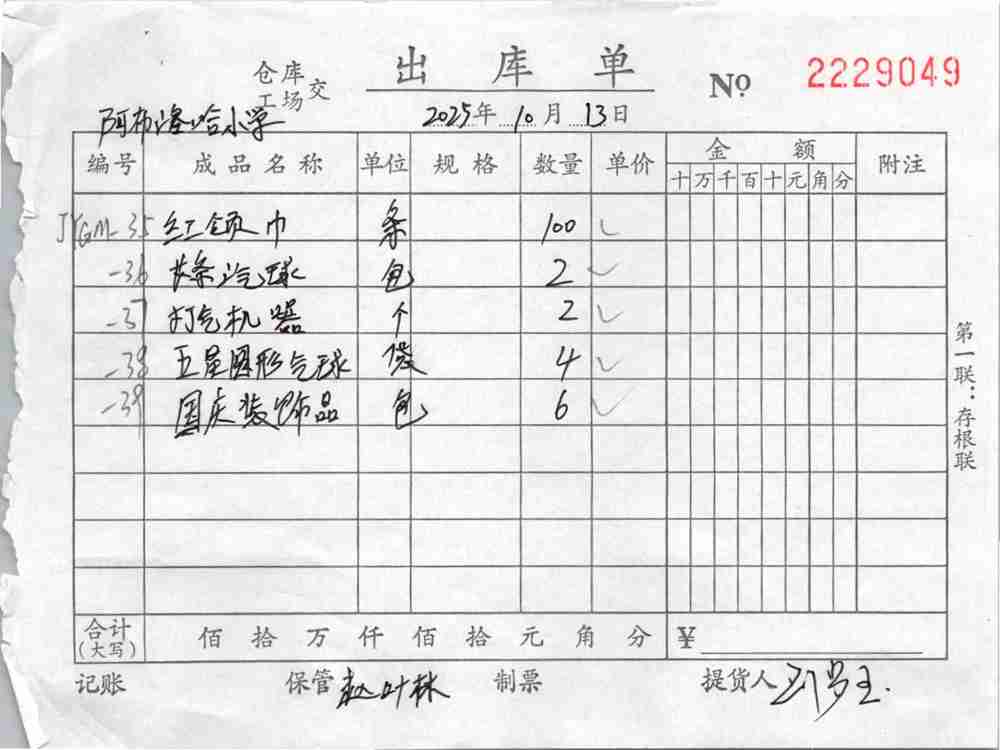 出库单
仓库
工场交
No 2229049
阿布洛哈小学
2025年10月13日
编号 成品名称 单位 规格 数量 单价 金额 附注
十万千百十元角分
JYGM-35 红领巾 条 100 ✓
-36 长条汽球 包 2 ✓
-37 打气机器 个 2 ✓
-38 五星圆形气球 袋 4 ✓
-39 国庆装饰品 包 6 ✓
第一联：存根联
合计(大写) 佰拾万仟佰拾元角分 ¥
记账 保管 赵叶林 制票 提货人